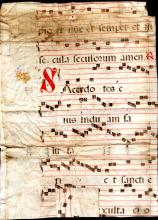 et nūc et semper et in
se cula seculorum amen
Sacerdo tes e
ius indu am sa
lu ta
et sancti e
xulta